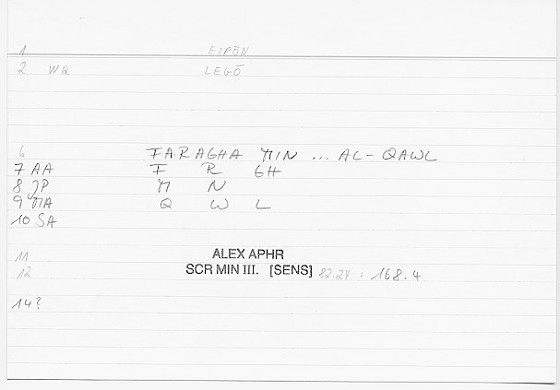 1 EIPŌN
2 WQ LEGŌ
6 FARAGHA MIN ... AL-QAWL
7 AA F R GH
8 JP M N
9 MA Q W L
10 SA
11 ALEX APHR
12 SCR MIN III. [SENS] 82.24 : 168.4
14?